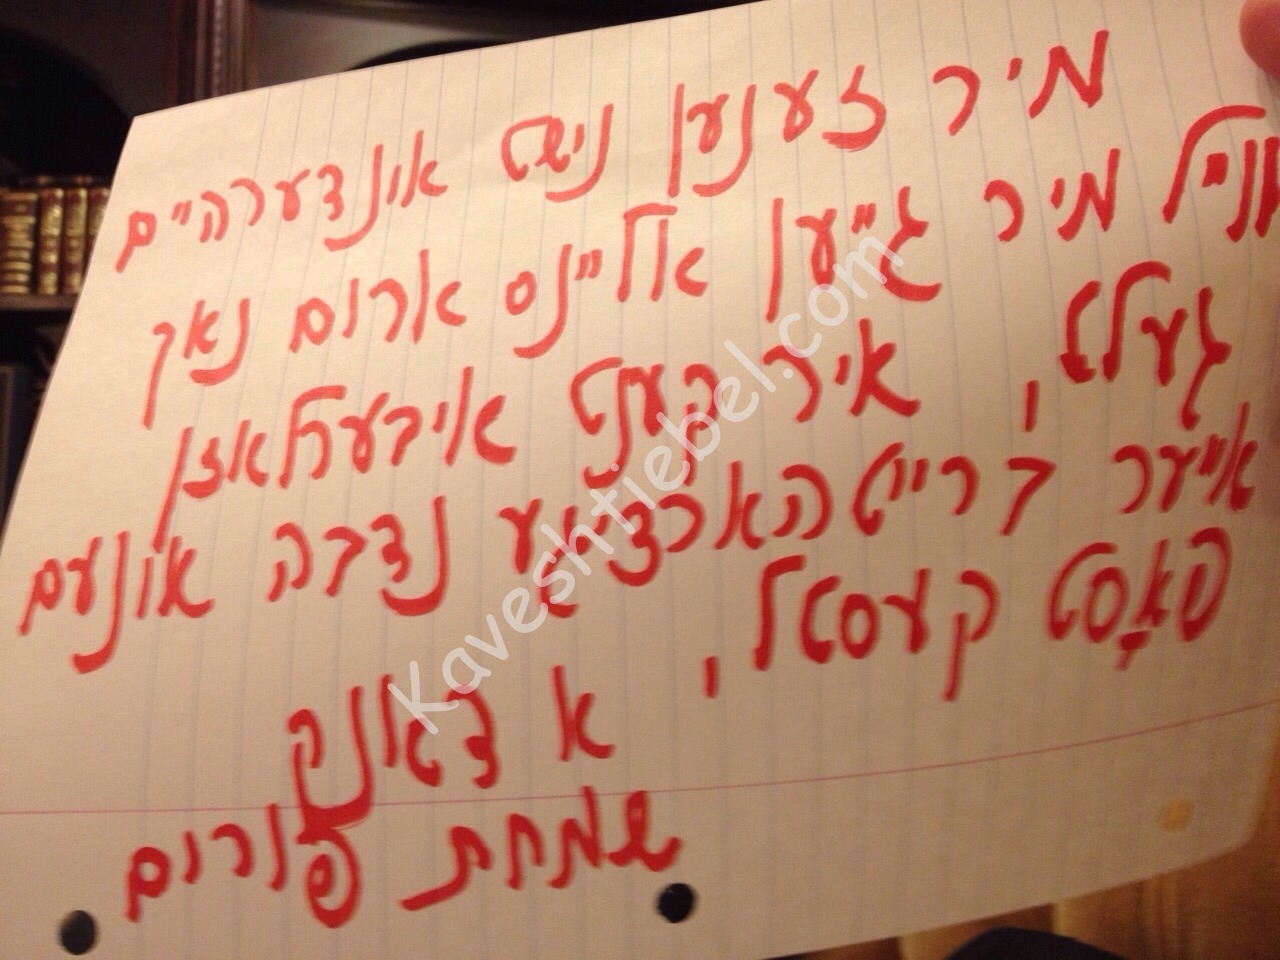 מיר זענען נישט אינדערהיים
ווייל מיר גייען אליינס ארום נאך
געלט, איר קענט איבערלאזן
אייער ברייטהארציגע נדבה אונעם
פאָסט קעסטל, א דאנק
שמחת פורים
Kaveshtiebel.com